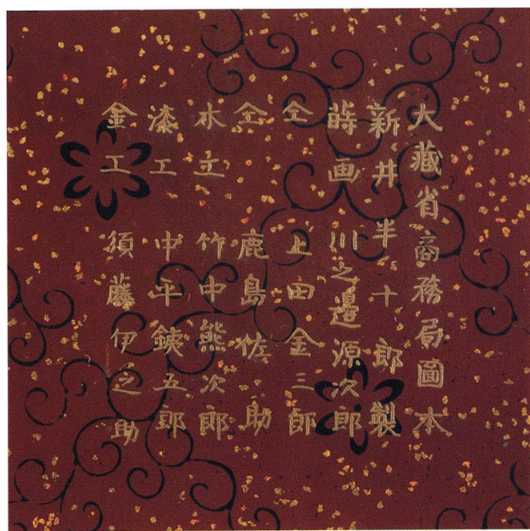 大藏省商務局圖本
新井半十郎製
蒔画 川之邉源次郎
仝 上田金三郎
仝 鹿島佐助
木工 竹中熊次郎
漆工 中平銕五郎
金工 須藤伊之助